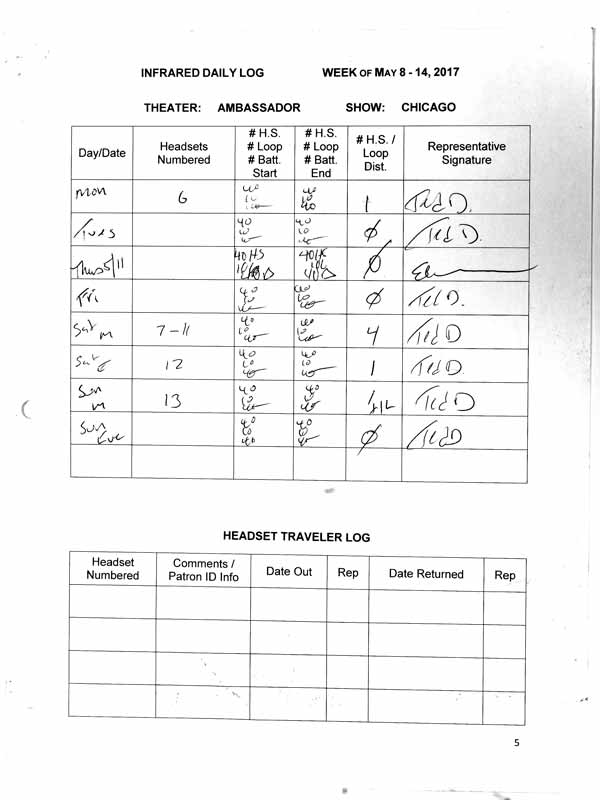 INFRARED DAILY LOG WEEK OF MAY 8 - 14, 2017
THEATER: AMBASSADOR SHOW: CHICAGO
Day/Date
Headsets
Numbered
# H.S.
# Loop
# Batt.
Start
# H.S.
# Loop
# Batt.
End
# H.S. /
Loop
Dist.
Representative
Signature
Mon 6 40 10 40 40 10 40 1 Ted D.
Tues 40 10 40 40 10 40 Ø Ted D.
Thurs 5/11 40 HS 40 HS Ø
Fri 40 10 40 40 10 40 Ø Ted D.
Sat m 7-11 40 10 40 40 10 40 4 Ted D
Sat E 12 40 10 40 40 10 40 1 Ted D.
Sun m 13 40 10 40 40 10 40 Ted D
Sun Eve 40 10 40 40 10 40 Ø Ted D
HEADSET TRAVELER LOG
Headset
Numbered
Comments /
Patron ID Info
Date Out
Rep
Date Returned
Rep
5